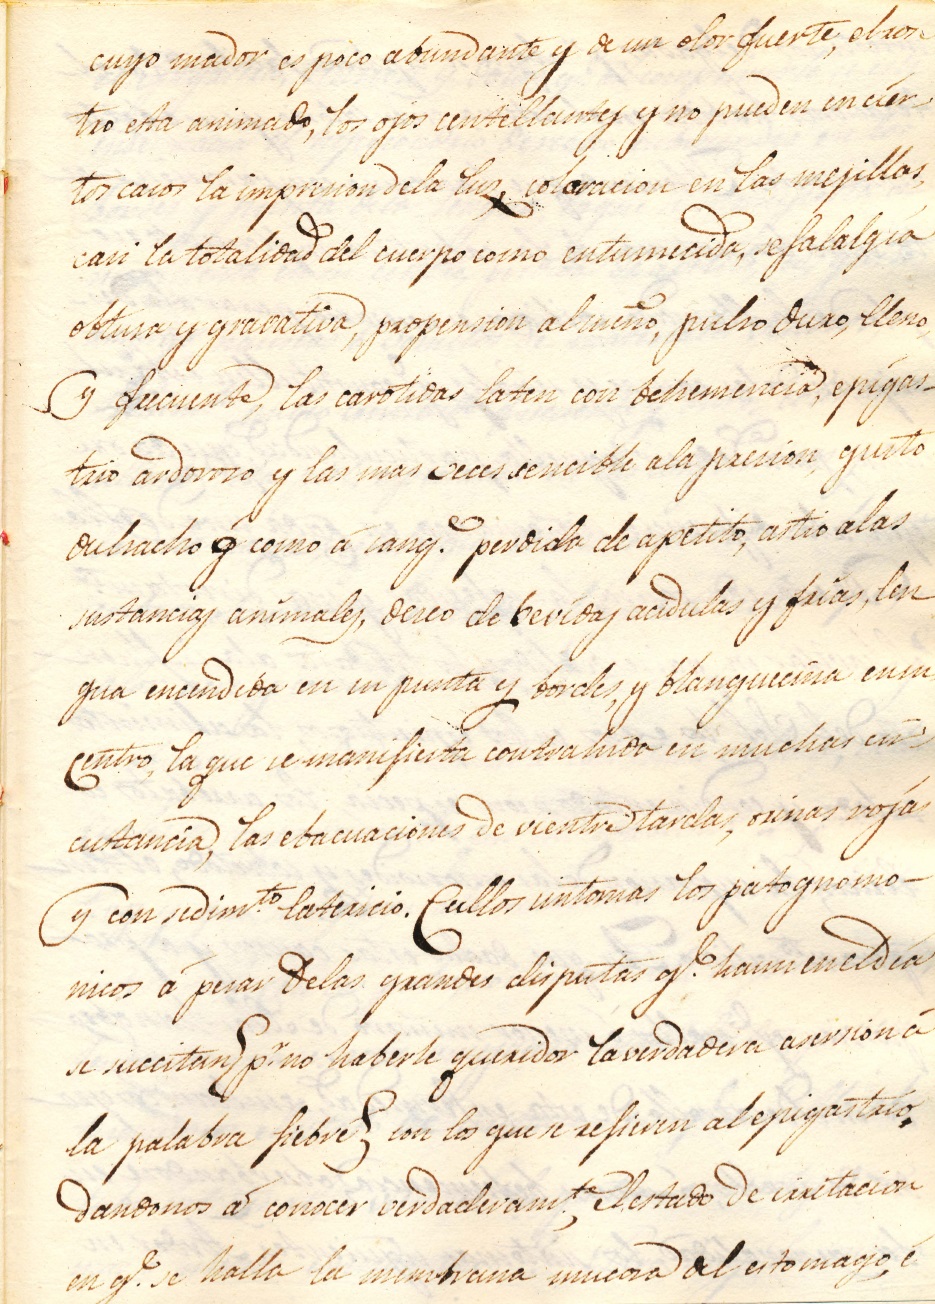 cuyo mador es poco abundante y de un olor fuerte, el ros-
tro esta animado, los ojos centellantes y no pueden en cier-
tos casos la impresion dela luz, coloracion en las mejillas,
casi la totalidad del cuerpo como entumecida, sefalalgia
obtusa y gravativa, propension al sueño, pulso duro, lleno,
y frecuente, las carotidas laten con behemencia, epigas-
trio ardoroso y las mas veces sencible ala presion, gusto
dulsacho ó como á sang.e perdida de apetito, astio alas
sustancias animales, deseo de bevidas acidulas y frias, len
gua encendida en su punta y bordes, y blanquecina en su
centro, la que se manifiesta contrahida en muchas cir-
custancia, las ebacuaciones de vientre tardas, orinas rojas
y con sedim.to latericio. Cullos sintomas los patognomo-
nicos á pesar delas grandes disputas q.e haun en el dia
se sucitan p.r no haberle querido la verdadera asersion á
la palabra fiebre con los que se refieren al epigastrio,
dandonos á conocer verdaderam.te, el estado de irritacion
en q.e se halla la membrana mucosa del estomago, é